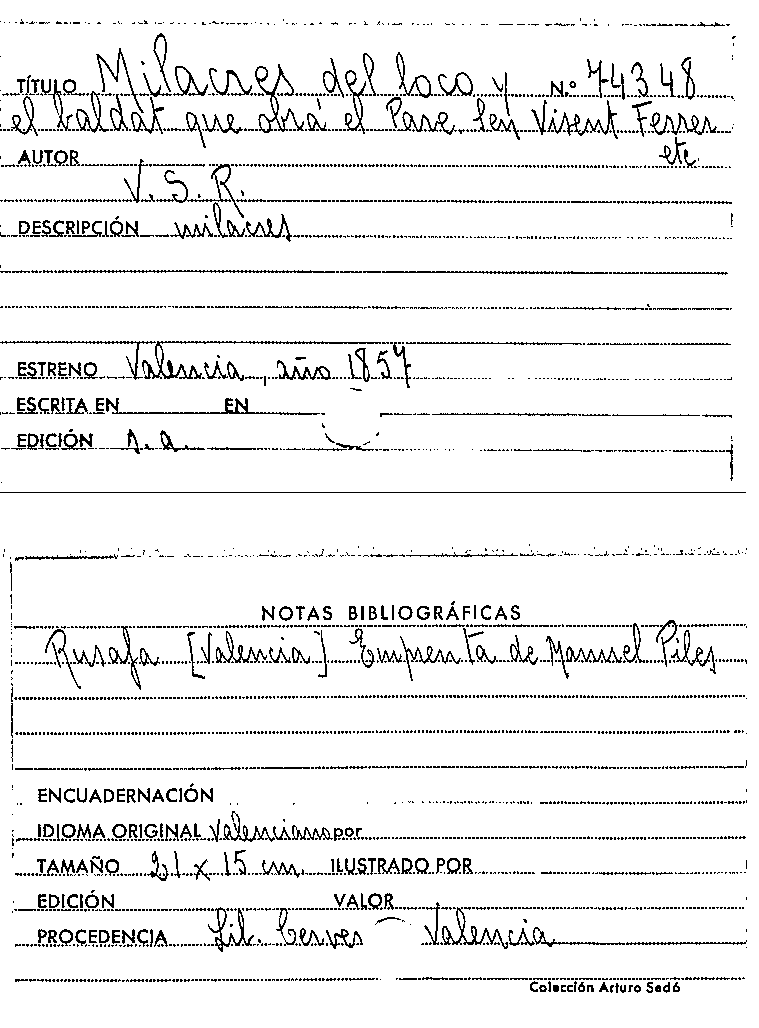 TÍTULO Milacres del loco y N.º 74348
el baldat que obrá el Pare Sen Visent Ferrer
etc
AUTOR
V. S. R.
DESCRIPCIÓN milacres
ESTRENO Valencia, año 1857
ESCRITA EN EN
EDICIÓN s.a.
NOTAS BIBLIOGRÁFICAS
Rusafa [Valencia] Emprenta de Manuel Piles
ENCUADERNACIÓN
IDIOMA ORIGINAL Valenciano por
TAMAÑO 21 x 15 cm. ILUSTRADO POR
EDICIÓN VALOR
PROCEDENCIA Lib. Cerves - Valencia
Colección Arturo Sedó